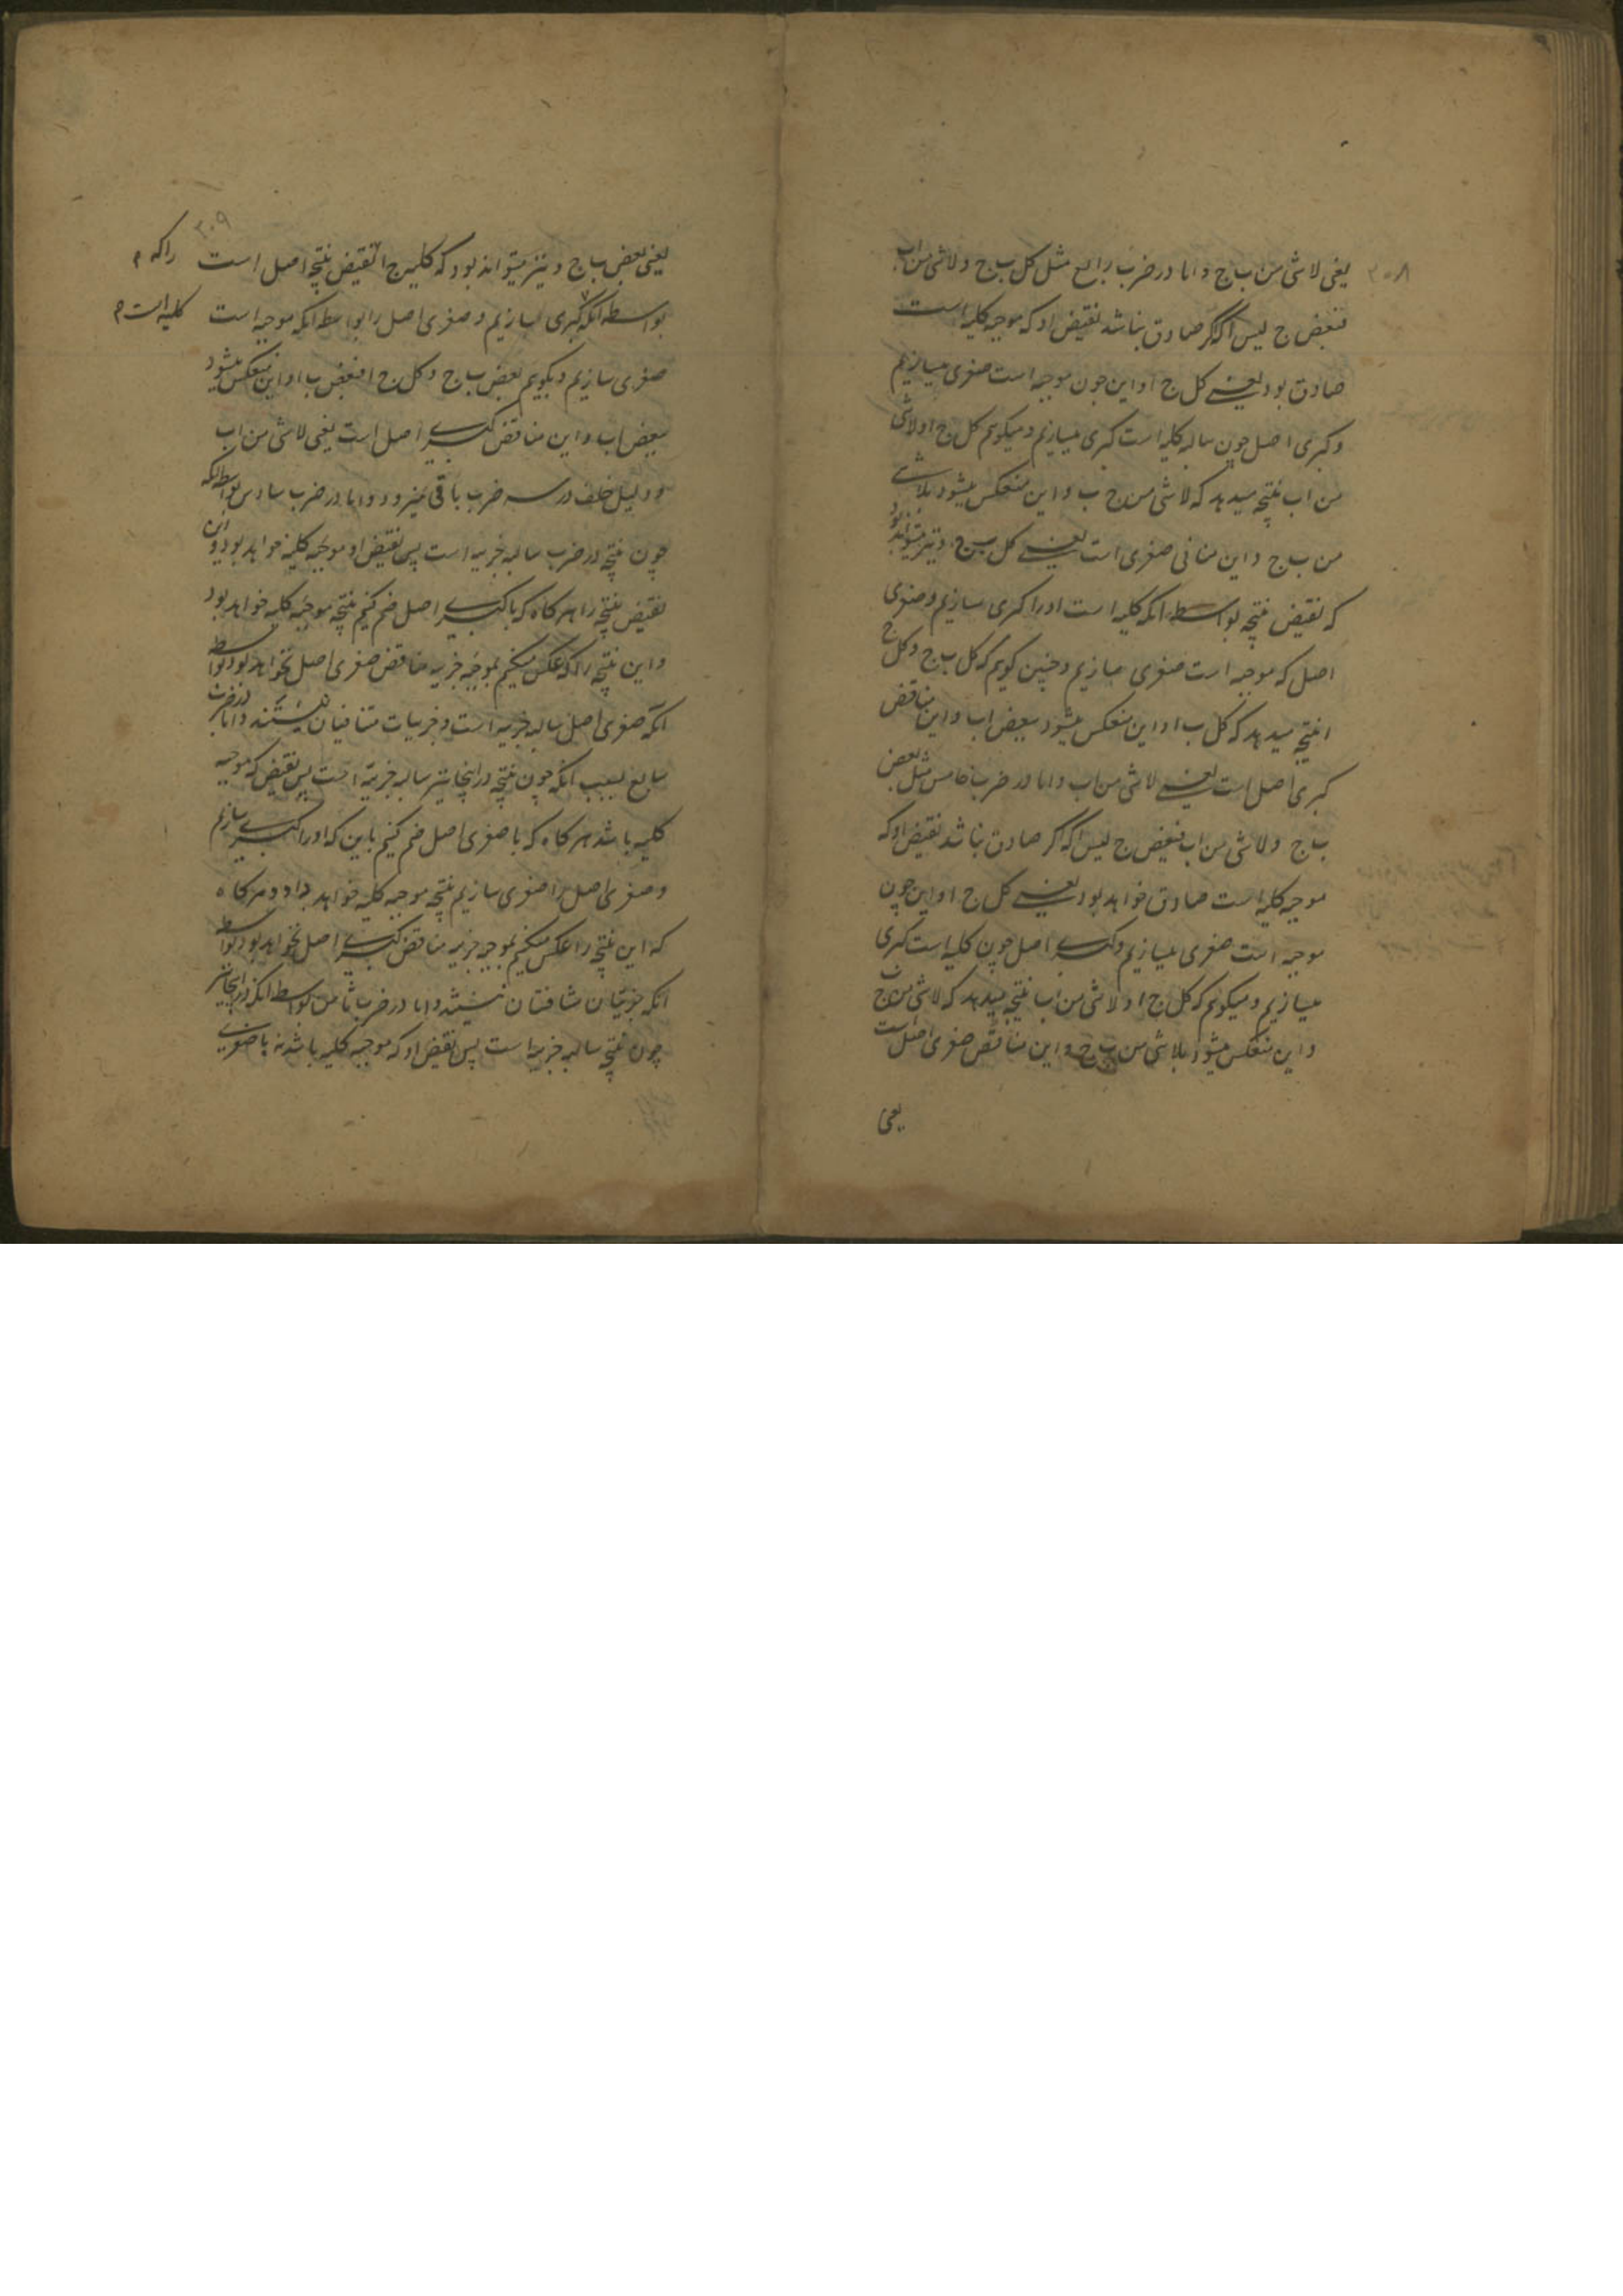 ۳۰۸
یعنی لاشی من ب ج و اما در ضرب رابع مثل کل ب ج و لاشی من ا ب
فبعض ج لیس ا که اگر صادق نباشد نقیض او که موجبه کلیه است
صادق بود یعنی کل ج ا و این چون موجبه است صغری میسازیم
و کبری اصل چون سالبه کلیه است کبری میسازیم و میکویم کل ج ا و لاشی
من ا ب نتیجه میدهد که لاشی من ج ب و این منعکس میشود بلاشی
من ب ج و این منافی صغری است یعنی کل ب ج و نیز میتواند بود
که نقیض نتیجه بواسطه انکه کلیه است او را کبری سازیم و صغری
اصل که موجبه است صغری سازیم و چنین کویم که کل ب ج و کل ج
ا نتیجه میدهد که کل ب ا و این منعکس میشود ببعض ا ب و این مناقض
کبری اصل است یعنی لاشی من ا ب و اما در ضرب خامس مثل بعض
ب ج و لاشی من ا ب فبعض ج لیس ا که اگر صادق نباشد نقیض او که
موجبه کلیه است صادق خواهد بود یعنی کل ج ا و این چون
موجبه است صغری میسازیم و کبری اصل چون کلیه است کبری
میسازیم و میکویم که کل ج ا و لاشی من ا ب نتیجه میدهد که لاشی من ج ب
و این منعکس میشود بلاشی من ب ج و این مناقض صغری اصل است
یعنی
۳۰۹
یعنی بعض ب ج و نیز میتواند بود که کل ج ا نقیض نتیجه اصل است را که م
بواسطه انکه کبری سازیم و صغری اصل را بواسطه انکه موجبه است کلیه است م
صغری سازیم و بکویم بعض ب ج و کل ج ا فبعض ب ا و این منعکس میشود
ببعض ا ب و این مناقض کبری اصل است یعنی لاشی من ا ب
و دلیل خلف در سه ضرب باقی نمیرود و اما در ضرب سادس بواسطه انکه
چون نتیجه در ضرب سالبه جزییه است پس نقیض او موجبه کلیه خواهد بود و این
نقیض نتیجه را هر کاه که با کبری اصل ضم کنیم نتیجه موجبه کلیه خواهد بود
و این نتیجه را که عکس میکنیم بموجبه جزییه مناقض صغری اصل نخواهد بود بواسطه
انکه صغری اصل سالبه جزییه است و جزییات متنافیان نیستند و اما در ضرب
سابع بسبب انکه چون نتیجه در اینجا نیز سالبه جزییه است پس نقیض که موجبه
کلیه باشد هر کاه که با صغری اصل ضم کنیم باین که او را کبری سازیم
و صغری اصل را صغری سازیم نتیجه موجبه کلیه خواهد داد و هر کاه
که این نتیجه را عکس میکنیم بموجبه جزییه مناقض کبری اصل نخواهد بود بواسطه
انکه جزییتان متنافتان نیستند و اما در ضرب ثامن بواسطه انکه در اینجا نیز
چون نتیجه سالبه جزییه است پس نقیض او که موجبه کلیه باشد نه با صغری